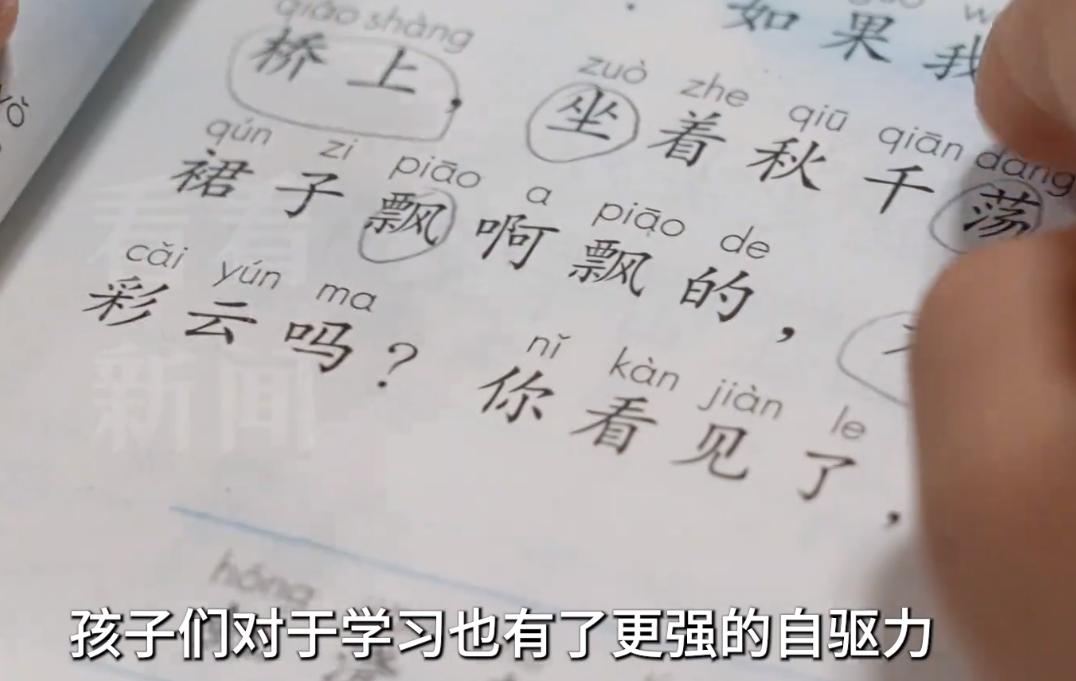 如果我
qiáo shàng
桥上，
zuò zhe qiū qiān dàng
坐着秋千荡
qún zi piāo a piāo de
裙子飘啊飘的，
cǎi yún ma
彩云吗？
nǐ kàn jiàn le
你看见了，
看看
新闻
孩子们对于学习也有了更强的自驱力